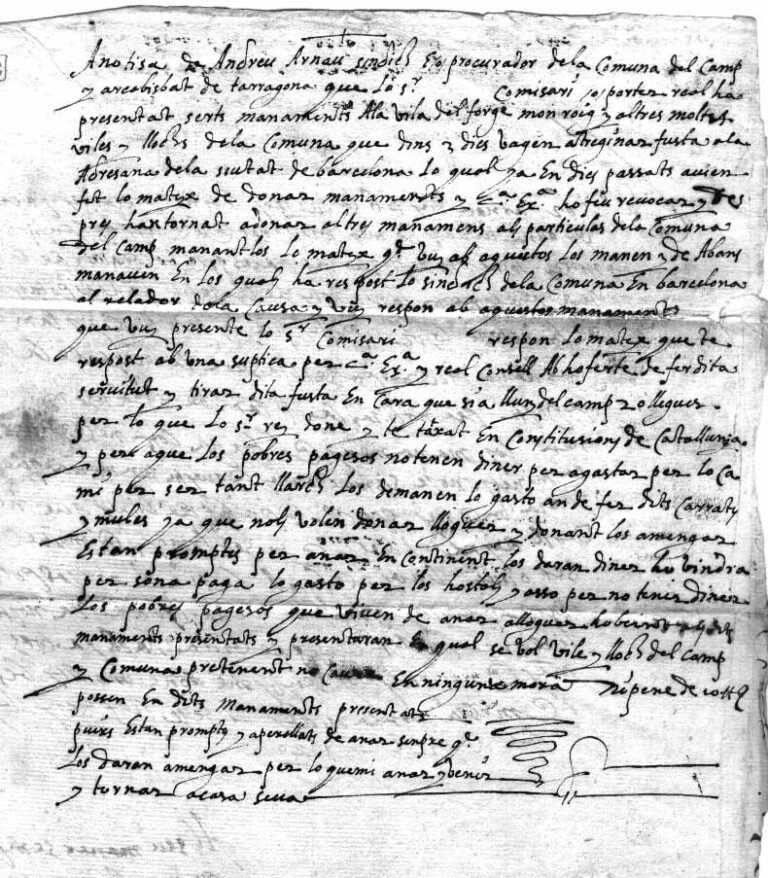 A notisia de Andreu Arnau sindich Eo procurador dela Comuna del Camp
y arcabisbat de tarragona que lo sr Comisari osporter real ha
presentat serts manaments Ala vila del forge monroig y altres moltes
viles y llochs dela Comuna que dins 2 dies vagen atreginar fusta ala
Adresana dela siutat de barcelona lo qual ya En dies passats avien
fet lo matex de donar manaments y Ca Exa ho feu revocar y des
pres han tornat adonar altres manamens als particulas dela Comuna
del Camp manantlos lo matex qe vuy ab aquestos los manen y de Abans
manaven En los quals ha respost lo sindich dela Comuna En barcelona
al relador dela Causa y vuy respon ab aquestos manaments
que vuy presente lo sr Comisari respon lo matex que te
respost ab una suplica per Ca Exa y real Consell Ab hoferte de fer dita
servitut y tirar dita fusta En Cara que sia lluny del camp 20 llegues
per lo que lo sr rey done y te taxat En Constitusions de Catallunya
y per aque los pobres pagesos no tenen diner per agastar per lo Ca
mi per ser tant llarch los demanen lo gasto an de fer dits Carrats
y mules ya que nols volen donar lloguer y donant los amengar
Estan promptes per anar En Continent los daran diner ho vindra
per sona paga lo gasto per los hostals y asso per no tenir diner
Los pobres pagesos que viven de anar alloguar
manaments presentats y presentaran qual se vol vile y lloch del camp
y Comuna pretenent no Caure En ninguna mora Ni pene de
possen En dits manaments presentats
puix Estan prompts y aperellats de anar senpre qe
Los daran amengar per lo quemi anar y venir
y tornar acasa seva